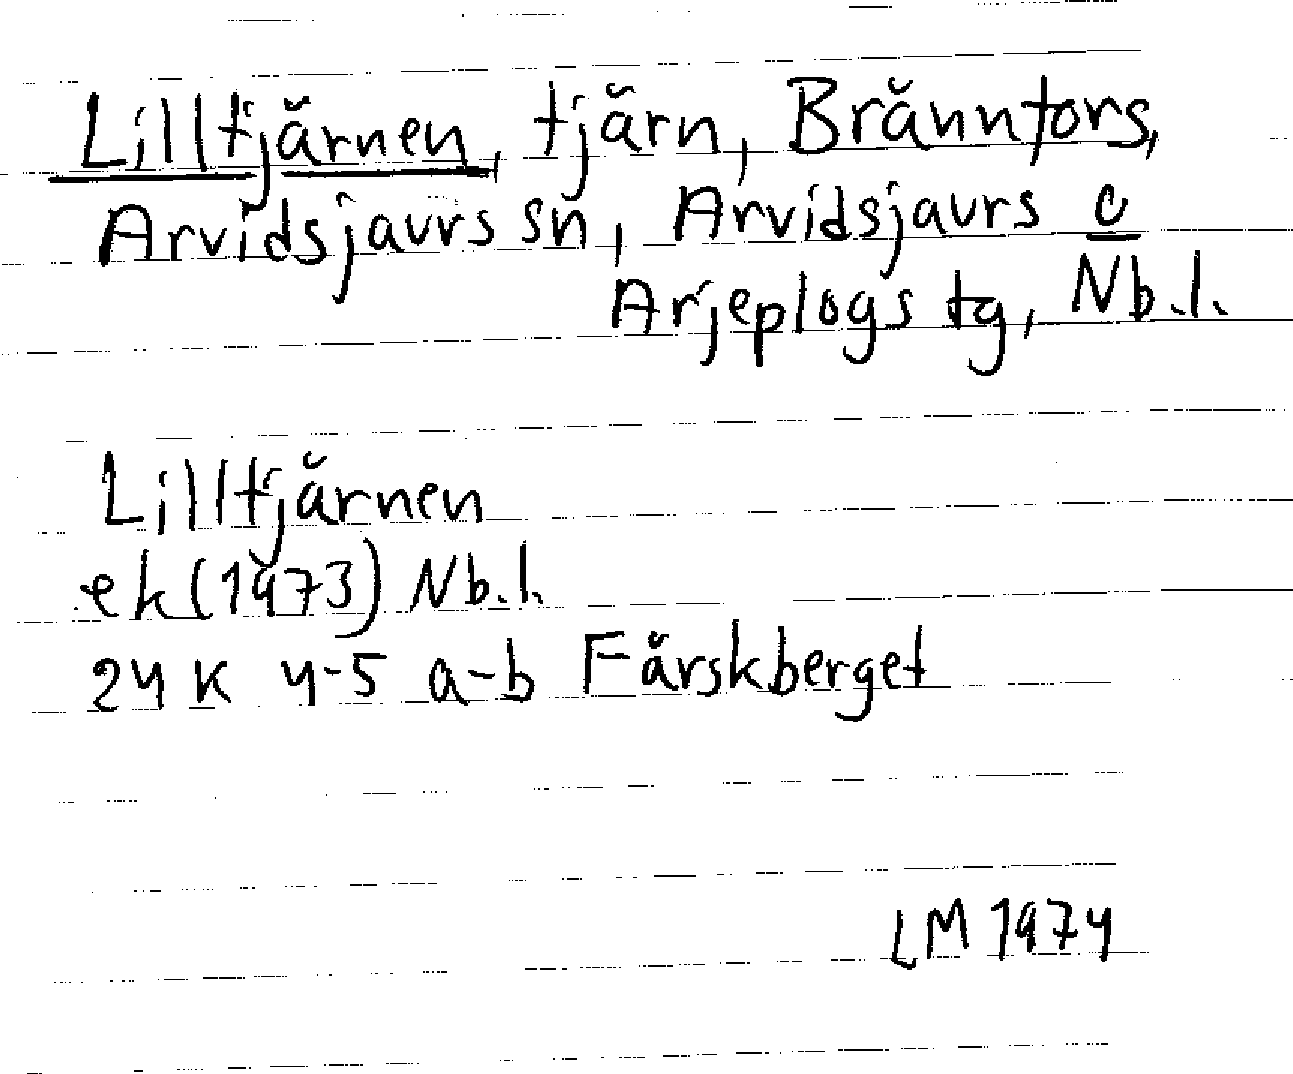 Lilltjärnen, tjärn, Brännfors,
Arvidsjaurs sn, Arvidsjaurs o
Arjeplogs tg, Nb.l.
Lilltjärnen
ek (1973) Nb.l.
24 K 4-5 a-b Färskberget
LM 1974